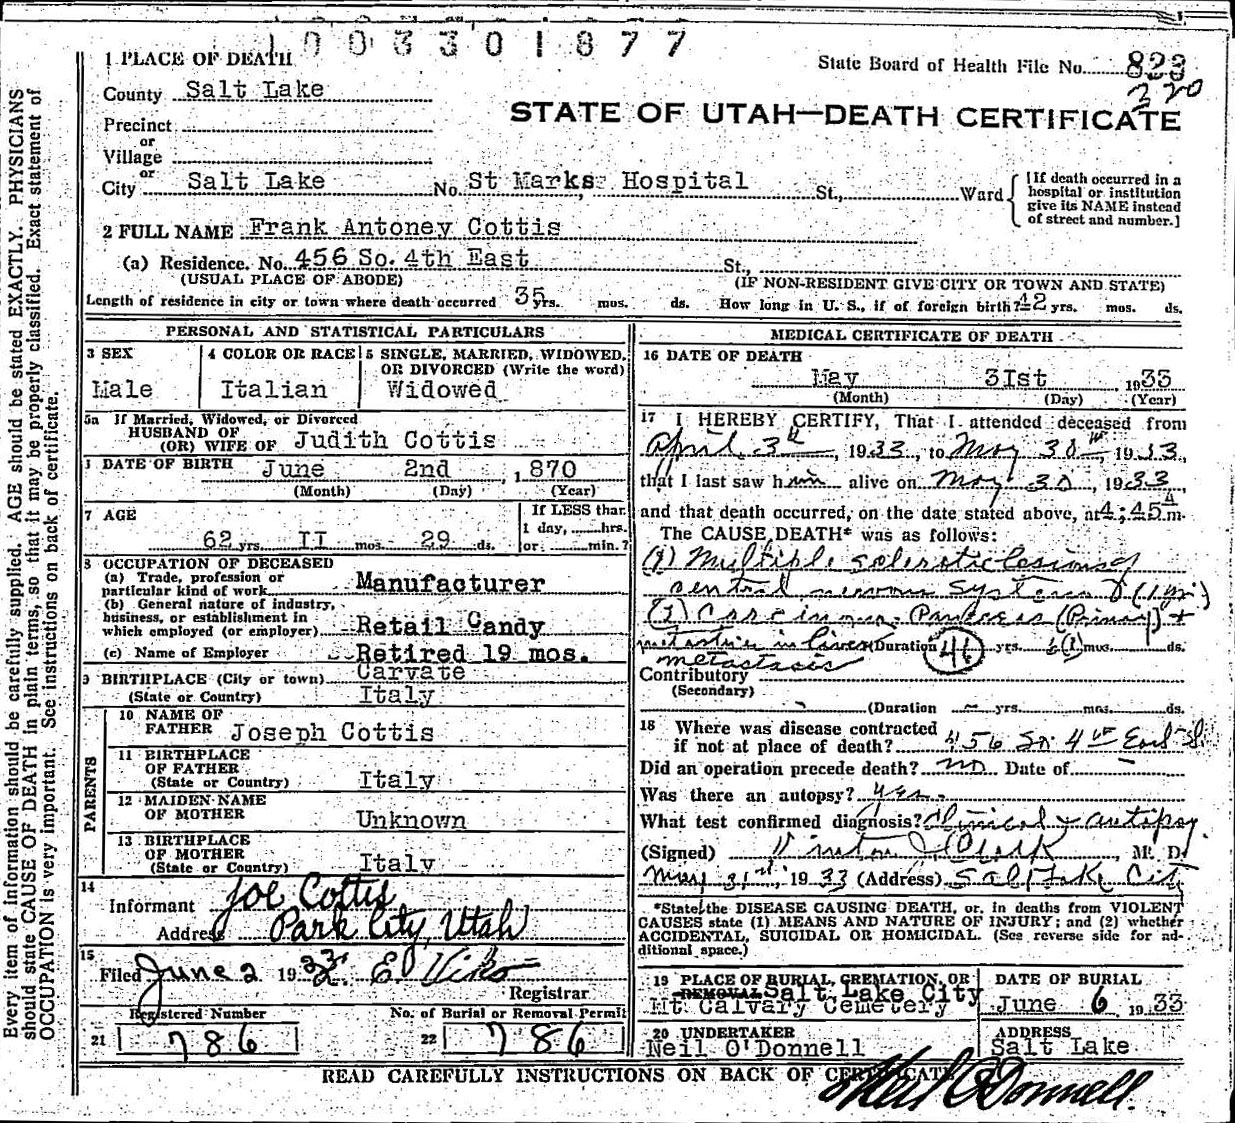 1003301877
1 PLACE OF DEATH
State Board of Health File No. 823
320
County Salt Lake
STATE OF UTAH—DEATH CERTIFICATE
Precinct
or
Village
or
City Salt Lake No. St Marks Hospital St., Ward
[If death occurred in a hospital or institution give its NAME instead of street and number.]
2 FULL NAME Frank Antoney Cottis
(a) Residence. No. 456 So. 4th East St.,
(USUAL PLACE OF ABODE) (IF NON-RESIDENT GIVE CITY OR TOWN AND STATE)
Length of residence in city or town where death occurred 35 yrs. mos. ds. How long in U. S., if of foreign birth? 42 yrs. mos. ds.
PERSONAL AND STATISTICAL PARTICULARS
3 SEX
Male
4 COLOR OR RACE
Italian
5 SINGLE, MARRIED, WIDOWED,
OR DIVORCED (Write the word)
Widowed
5a If Married, Widowed, or Divorced
HUSBAND OF
(OR) WIFE OF Judith Cottis
DATE OF BIRTH June 2nd , 1870
(Month) (Day) (Year)
7 AGE
If LESS than
1 day, hrs.
62 yrs. II mos. 29 ds. or min.?
8 OCCUPATION OF DECEASED
(a) Trade, profession or
particular kind of work Manufacturer
(b) General nature of industry,
business, or establishment in
which employed (or employer) Retail Candy
(c) Name of Employer Retired 19 mos.
9 BIRTHPLACE (City or town) Carvate
(State or Country) Italy
PARENTS
10 NAME OF
FATHER Joseph Cottis
11 BIRTHPLACE
OF FATHER
(State or Country) Italy
12 MAIDEN NAME
OF MOTHER Unknown
13 BIRTHPLACE
OF MOTHER
(State or Country) Italy
14
Informant Joe Cottis
Address Park City, Utah
15
Filed June 2 1933
Registrar
Registered Number
21 786
No. of Burial or Removal Permit
22 786
MEDICAL CERTIFICATE OF DEATH
16 DATE OF DEATH
May 31st 1933
(Month) (Day) (Year)
17 I HEREBY CERTIFY, That I attended deceased from
April 3rd, 1933, to May 30th, 1933,
that I last saw him alive on May 30, 1933,
and that death occurred, on the date stated above, at 4:45 A m.
The CAUSE DEATH* was as follows:
(1) Multiple sclerotic lesions of
central nervous system (1 yr)
(2) Carcinoma Pancreas (Primary) +
metastases in liver (Duration yrs. 6 mos. ds.
46
metastasis
Contributory
(Secondary)
(Duration yrs. mos. ds.
18 Where was disease contracted
if not at place of death? 456 So. 4th East St.
Did an operation precede death? no Date of
Was there an autopsy? yes.
What test confirmed diagnosis? Clinical + autopsy.
(Signed) Vinton Clark, M. D.
May 31st, 1933 (Address) Salt Lake City
*State the DISEASE CAUSING DEATH, or, in deaths from VIOLENT
CAUSES state (1) MEANS AND NATURE OF INJURY; and (2) whether
ACCIDENTAL, SUICIDAL OR HOMICIDAL. (See reverse side for ad-
ditional space.)
19 PLACE OF BURIAL, CREMATION, OR
REMOVAL Salt Lake City
Mt Calvary Cemetery
DATE OF BURIAL
June 6, 1933
20 UNDERTAKER
Neil O'Donnell
ADDRESS
Salt Lake
READ CAREFULLY INSTRUCTIONS ON BACK OF CERTIFICATE
Neil O'Donnell.
Every item of information should be carefully supplied. AGE should be stated EXACTLY. PHYSICIANS
should state CAUSE OF DEATH in plain terms, so that it may be properly classified. Exact statement of
OCCUPATION is very important. See instructions on back of certificate.